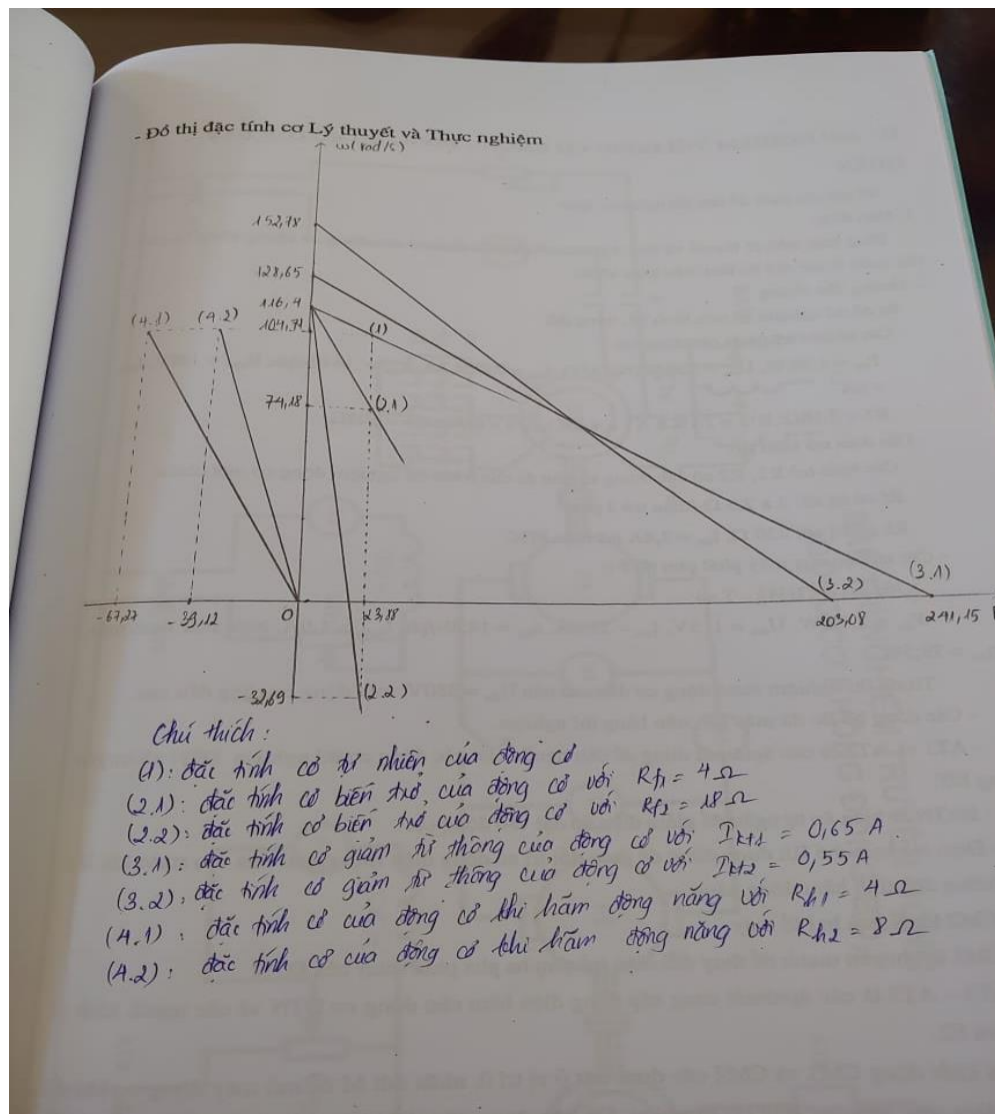 - Đồ thị đặc tính cơ Lý thuyết và Thực nghiệm
ω(rad/s)
152,78
128,65
116,4
(4.1) (4.2) 104,71 (1)
74,18 (2.1)
(3.2) (3.1)
-67,27 -39,12 0 23,88 203,08 241,15
-32,69 (2.2)
Chú thích:
(1): đặc tính cơ tự nhiên của động cơ
(2.1): đặc tính cơ biến trở của động cơ với Rf1 = 4Ω
(2.2): đặc tính cơ biến trở của động cơ với Rf2 = 18Ω
(3.1): đặc tính cơ giảm từ thông của động cơ với Ikt1 = 0,65 A.
(3.2): đặc tính cơ giảm từ thông của động cơ với Ikt2 = 0,55 A
(4.1): đặc tính cơ của động cơ khi hãm động năng với Rh1 = 4Ω
(4.2): đặc tính cơ của động cơ khi hãm động năng với Rh2 = 8Ω